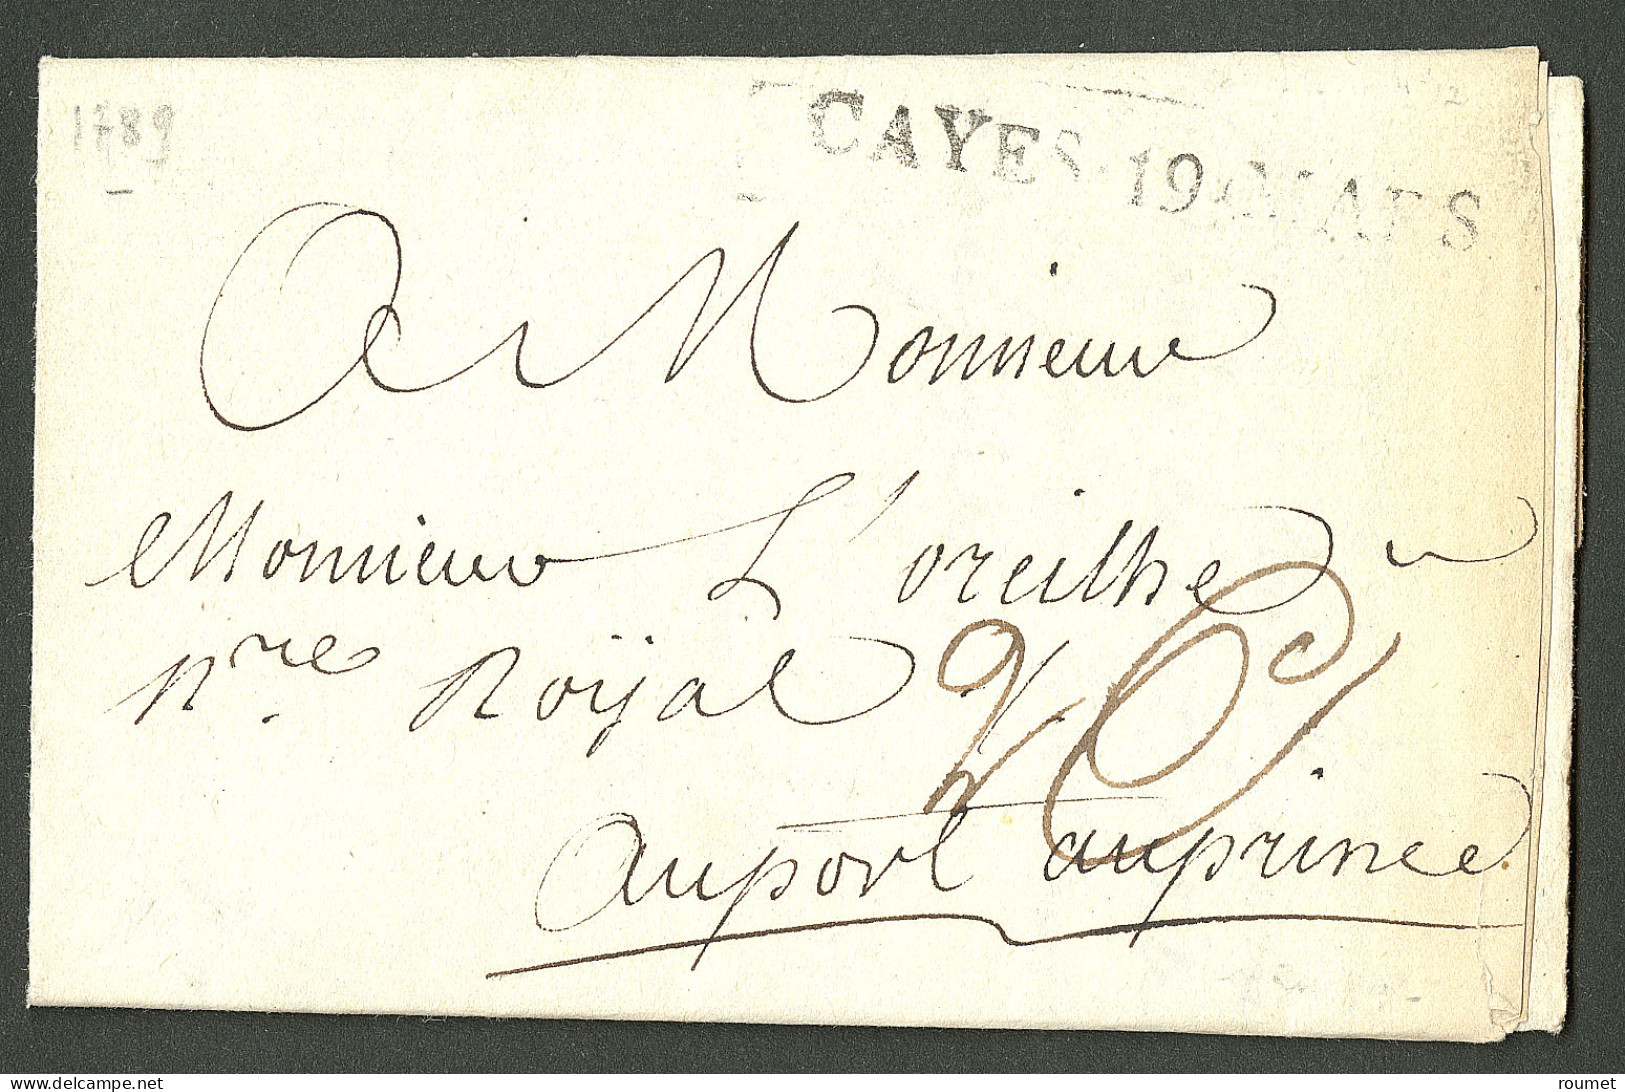 1789
CAYES. 19. MARS
A Monsieur
Monsieur L'oreilhe
N.re Royal
auport auprince
delcampe.net
roumet